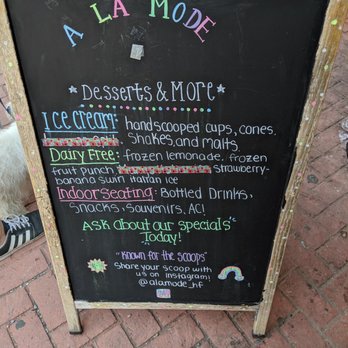 A LA MODE
Desserts & More
Ice cream: handscooped cups, cones,
shakes, and malts.
Dairy Free: frozen lemonade, frozen
fruit punch, strawberry-
banana swirl Italian ice
Indoor Seating: Bottled Drinks,
Snacks, Souvenirs, AC!
ASK about our specials
Today!
"Known for the scoops"
Share your scoop with
us on Instagram!
@alamode_hf